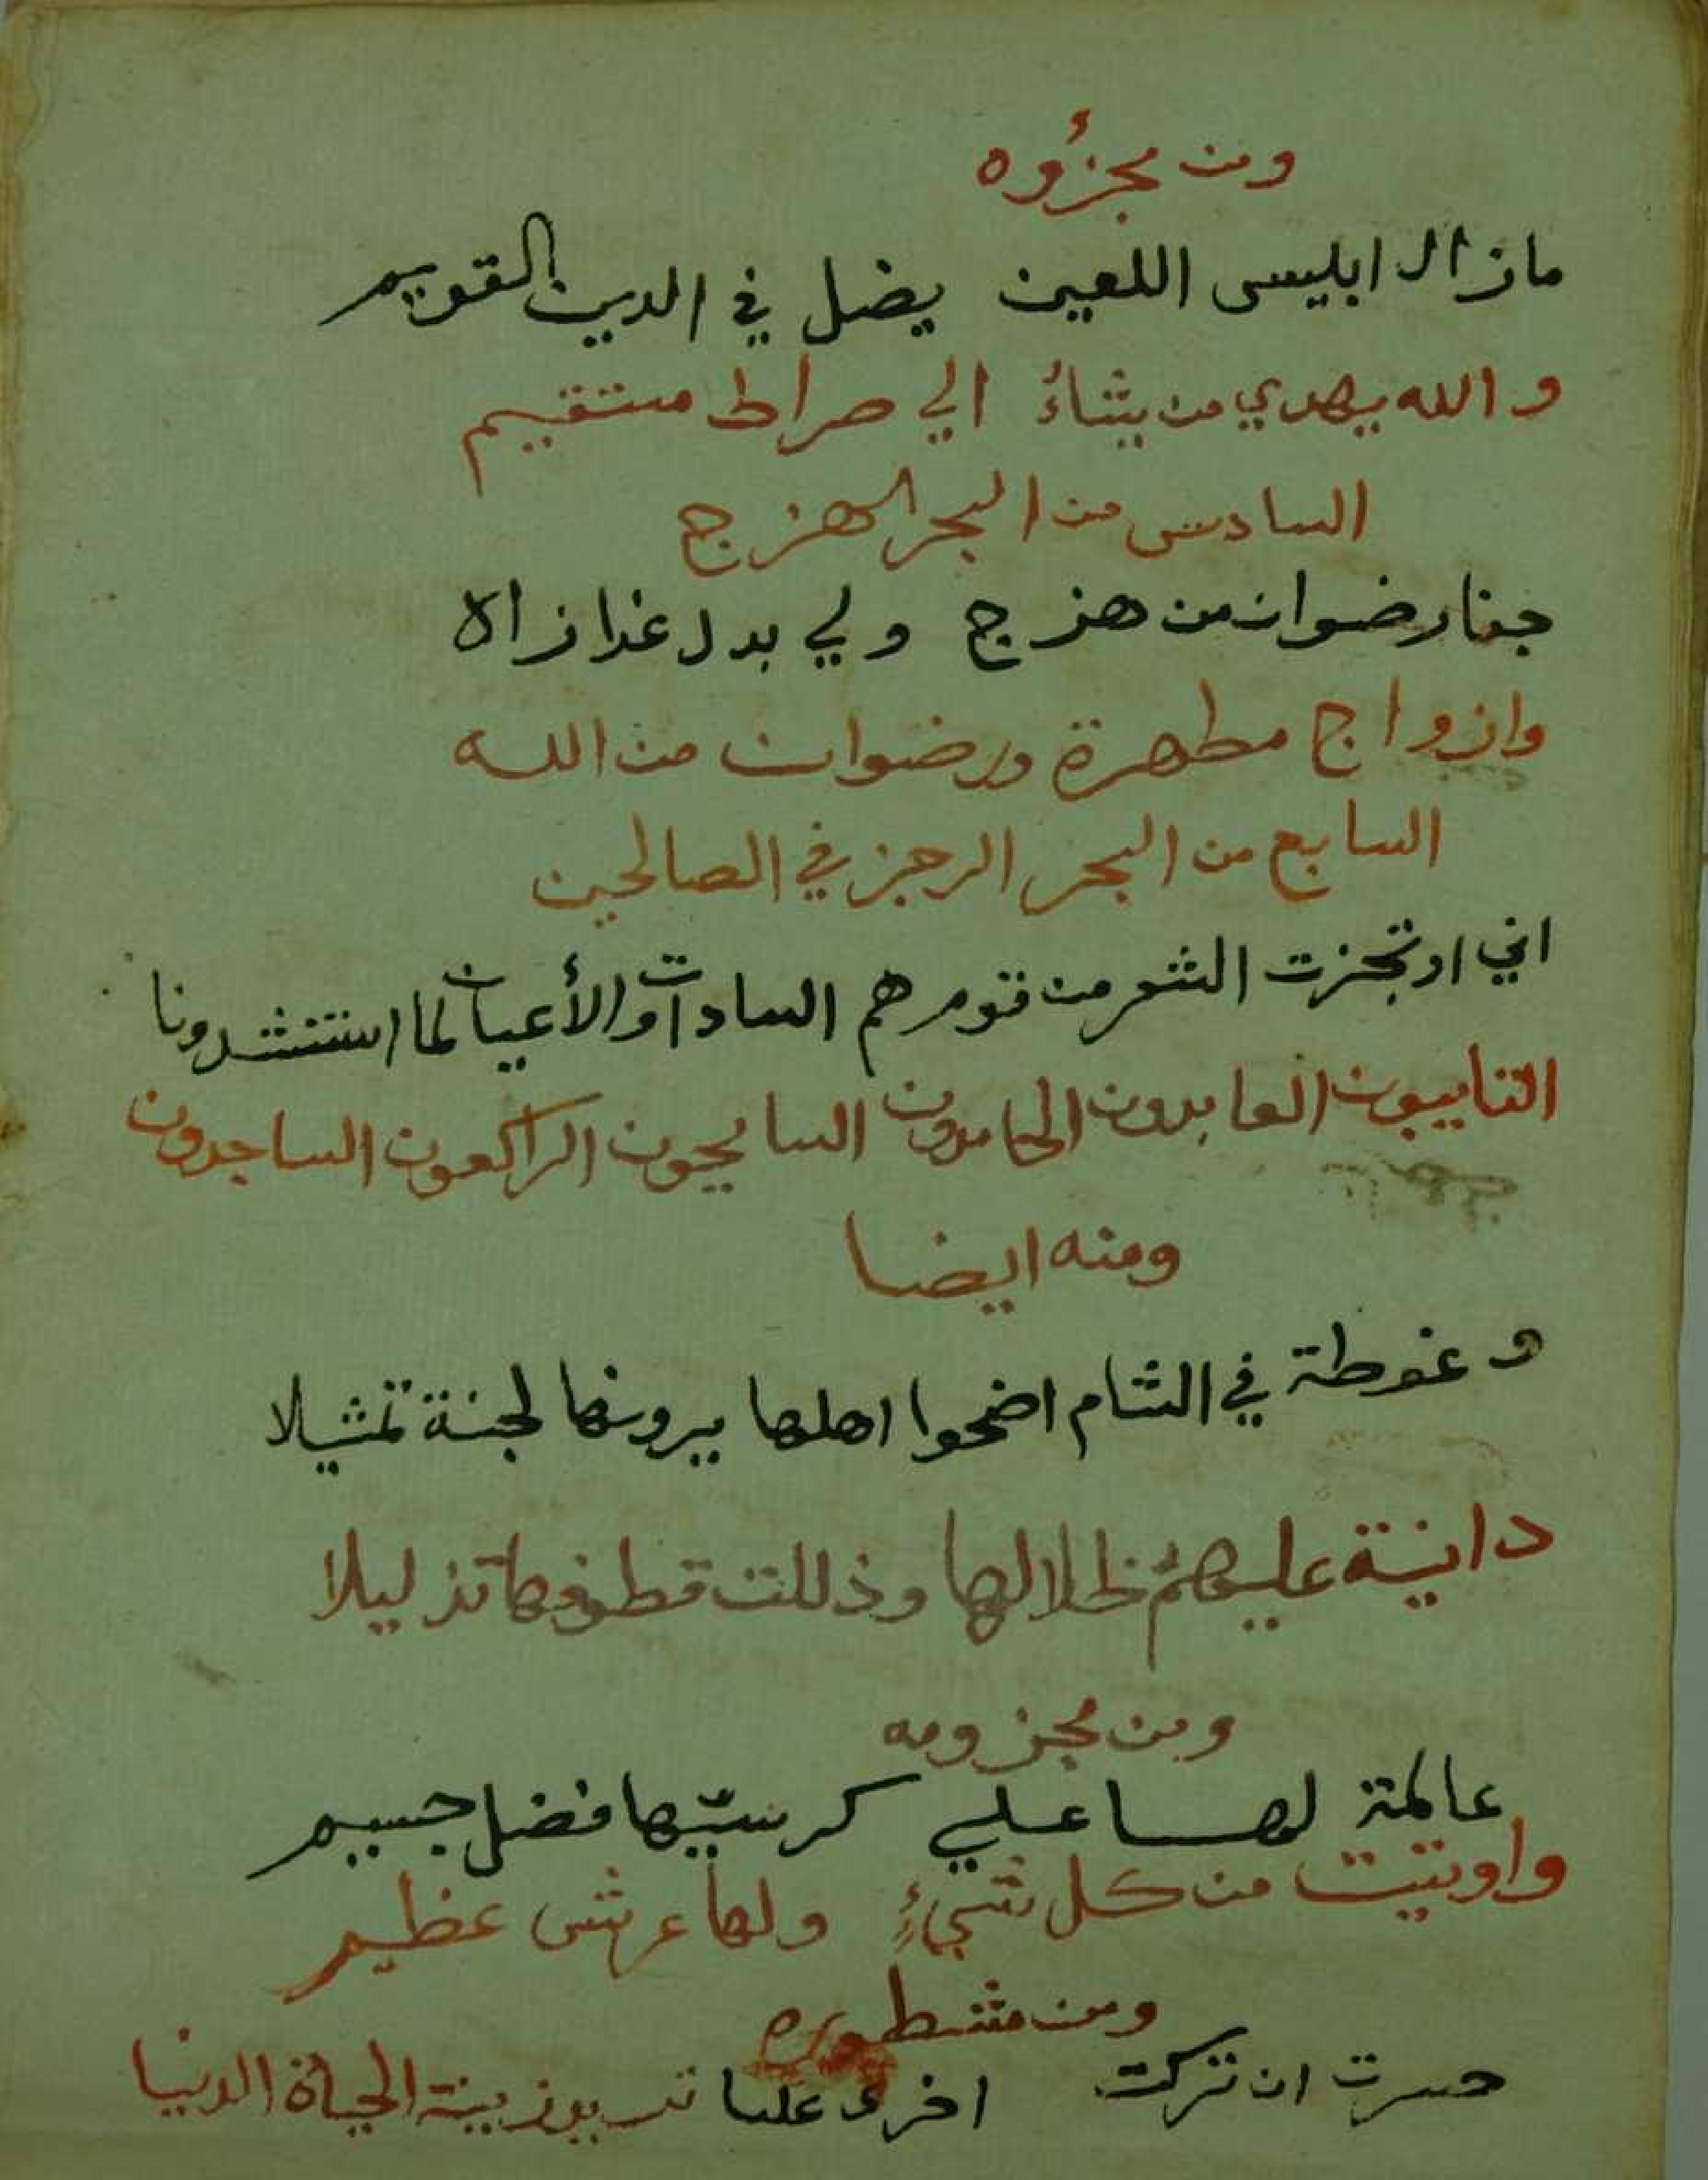 ومن مجزؤه
مازال ابليس اللعين يضل في الدين القويم
والله يهدي من يشاءُ الي صراط مستقيم
السادس من البحر الهزج
جنا رضوان من هزج ولي بدل غدا زاه
وازواج مطهرة ورضوان من الله
السابع من البحر الرجز في الصالحين
اني ارتجزت الشعر من قوم هم السادات والأعيان لما استنشدونا
التاييبون العابدون الحامدون السايحون الراكعون الساجدون
ومنه ايضا
وغوطة في الشام اضحوا اهلها يرونها لجنة تمثيلا
دانية عليهمُ ظلالها وذللت قطوفها تذليلا
ومن مجزومه
عالمة لها علي كرسيّها فضل جسيم
واوتيت من كل شيءٍ ولها عرش عظيم
ومن مشطوره
حسرت ان تركت اخرى عليا زينة الحياة الدنيا